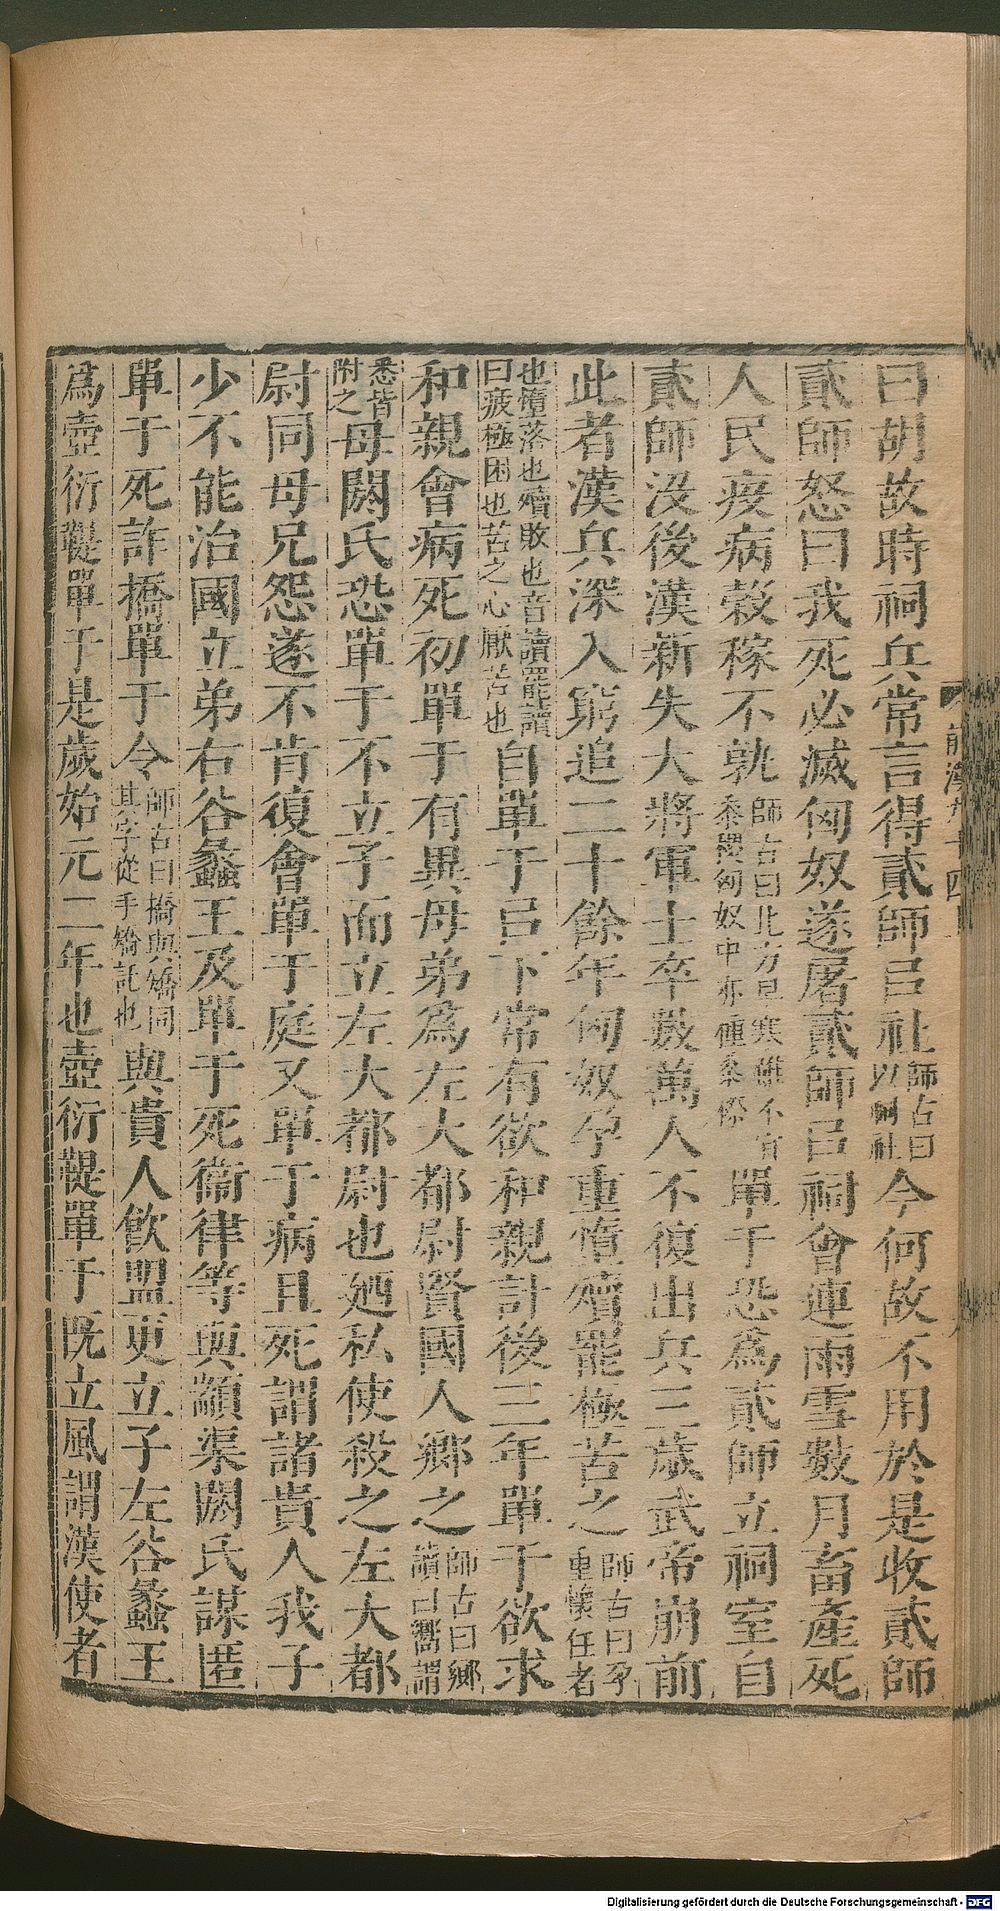 曰胡故時祠兵常言得貳師㠯社師古曰以祠社今何故不用於是收貳師
貳師怒曰我死必滅匈奴遂屠貳師㠯祠會連雨雪數月畜產死
人民疫病穀稼不孰師古曰北方早寒雖不宜黍稷匈奴中亦種黍穄單于恐爲貳師立祠室自
貳師沒後漢新失大將軍士卒數萬人不復出兵三歲武帝崩前
此者漢兵深入窮追二十餘年匈奴孕重憜殰罷極苦之師古曰孕重懷任者
也憜落也殰敗也音讀罷讀曰疲極困也苦之心厭苦也自單于㠯下常有欲和親計後三年單于欲求
和親會病死初單于有異母弟爲左大都尉賢國人鄉之師古曰鄉讀曰嚮謂
悉皆附之母閼氏恐單于不立子而立左大都尉也廼私使殺之左大都
尉同母兄怨遂不肯復會單于庭又單于病且死謂諸貴人我子
少不能治國立弟右谷蠡王及單于死衞律等與顓渠閼氏謀匿
單于死詐撟單于令師古曰撟與矯同其字從手矯託也與貴人飲盟更立子左谷蠡王
爲壺衍鞮單于是歲始元二年也壺衍鞮單于既立風謂漢使者
前漢九十四上
Digitalisierung gefördert durch die Deutsche Forschungsgemeinschaft - DFG